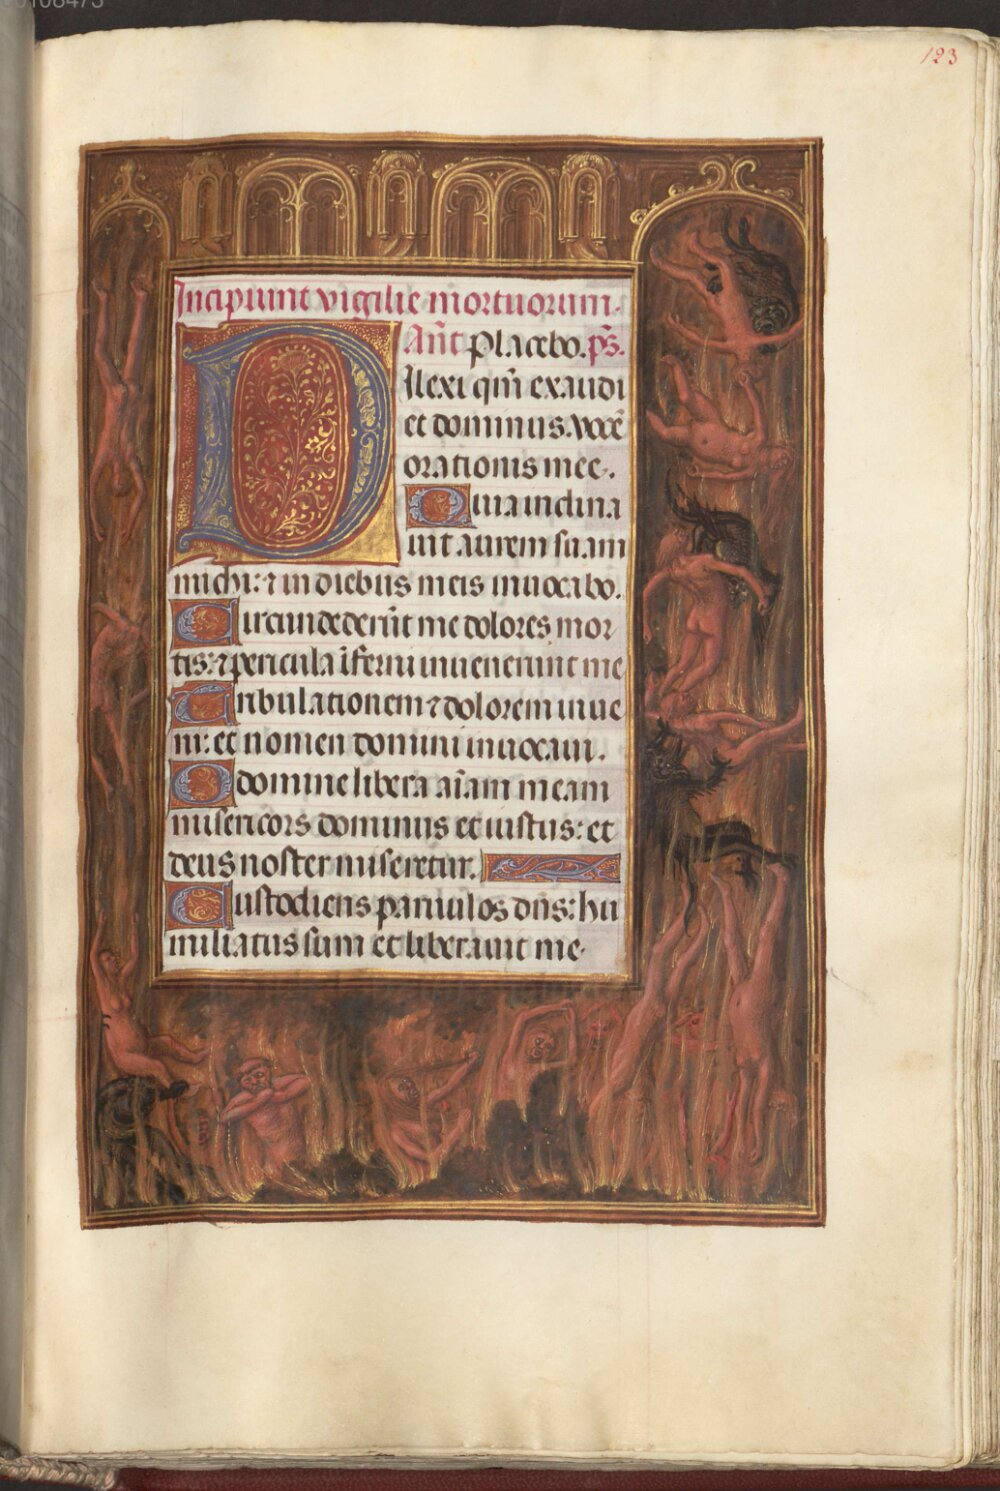 00108473
123
Incipiunt vigilie mortuorum.
Añt Placebo. ps̄.
Dilexi qm̄ exaudi
et dominus. vocē
orationis mee.
Quia inclina
uit aurem suam
michi: ⁊ in diebus meis inuocabo.
Circundederūt me dolores mor
tis: ⁊ pericula īferni inuenerunt me
Tribulationem ⁊ dolorem inue
ni: et nomen domini inuocaui.
O domine libera aīam meam
misericors dominus et iustus: et
deus noster miseretur.
Custodiens paruulos dn̄s: hu
miliatus sum et liberauit me.